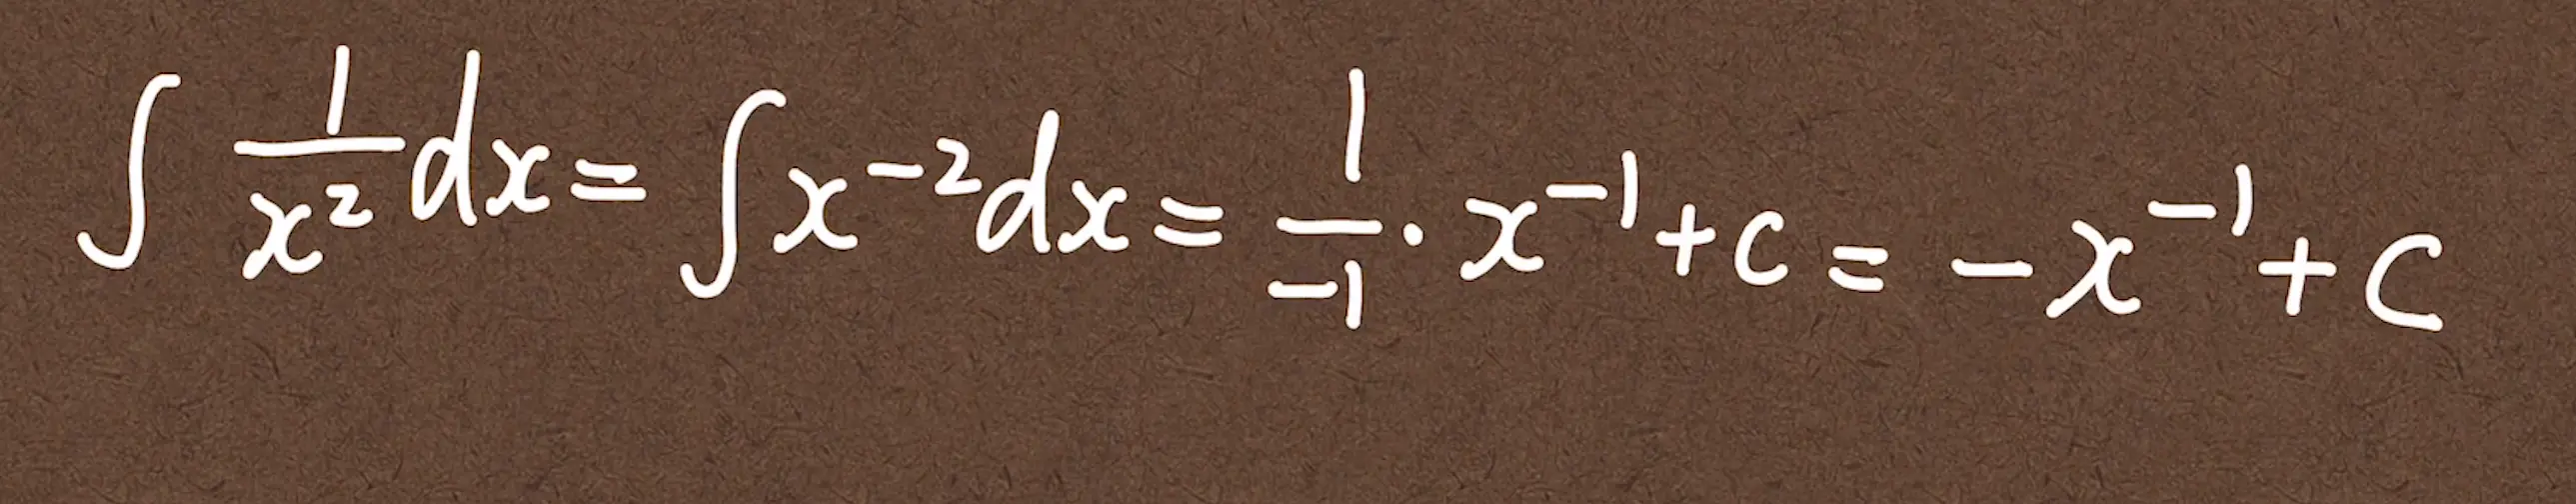 ∫ 1/x² dx = ∫ x⁻² dx = 1/-1 · x⁻¹ + c = -x⁻¹ + C